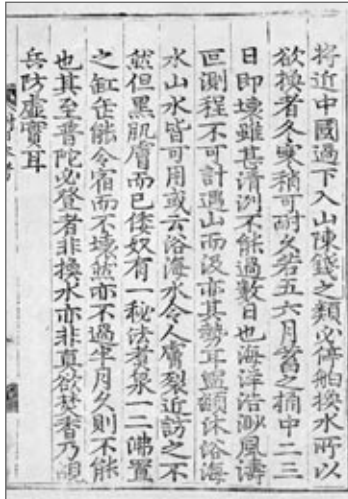 將近中國過下八山陳錢之類必停舶換水所以
欲換者冬寒稍可耐久若五六月蓄之桶中二三
日即壞雖甚清冽不能過數日也海洋浩渺風濤
叵測程不可計遇山而汲亦其勢耳盥額沐浴海
水山水皆可用或云浴海水令人膚裂近訪之不
然但黑肌膚而已倭奴有一秘法煮泉一二沸置
之缸缶能令宿而不壞然亦不過半月久則不能
也其至普陀必登者非換水亦非真欲焚香乃覘
兵防虛實耳